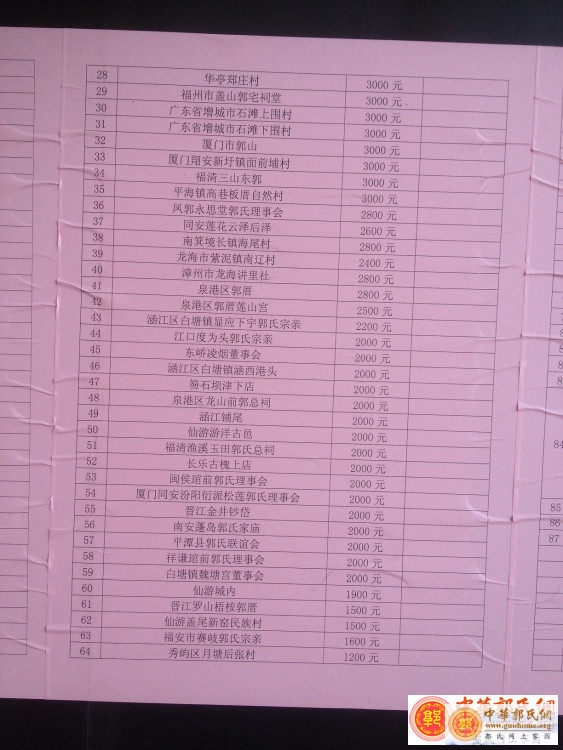 28 华亭郑庄村 3000 元
29 福州市盖山郭宅祠堂 3000 元
30 广东省增城市石滩上围村 3000 元
31 广东省增城市石滩下围村 3000 元
32 厦门市郭山 3000 元
33 厦门翔安新圩镇面前埔村 3000 元
34 福清三山东郭 3000 元
35 平海镇高巷板厝自然村 3000 元
36 凤郭永思堂郭氏理事会 2800 元
37 同安莲花云洋后洋 2600 元
38 南箕境长镇海尾村 2800 元
39 龙海市紫泥镇南辽村 2400 元
40 漳州市龙海讲里社 2800 元
41 泉港区郭厝 2800 元
42 泉港区郭厝莲山宫 2500 元
43 涵江区白塘镇显应下宇郭氏宗亲 2200 元
44 江口度为头郭氏宗亲 2000 元
45 东峤凌烟董事会 2000 元
46 涵江区白塘镇涵西港头 2000 元
47 笏石坝津下店 2000 元
48 泉港区龙山前郭总祠 2000 元
49 涵江铺尾 2000 元
50 仙游游洋古邑 2000 元
51 福清渔溪玉田郭氏总祠 2000 元
52 长乐古槐上店 2000 元
53 闽侯琯前郭氏理事会 2000 元
54 厦门同安汾阳衍派松莲郭氏理事会 2000 元
55 晋江金井钞岱 2000 元
56 南安蓬岛郭氏家庙 2000 元
57 平潭县郭氏联谊会 2000 元
58 祥谦琯前郭氏理事会 2000 元
59 白塘镇魏塘宫董事会 2000 元
60 仙游城内 1900 元
61 晋江罗山梧桉郭厝 1500 元
62 仙游盖尾新窑民族村 1500 元
63 福安市赛岐郭氏宗亲 1600 元
64 秀屿区月塘后张村 1200 元
84
85
86
87
中華郭氏網
www.guohome.org
郭氏网上家园